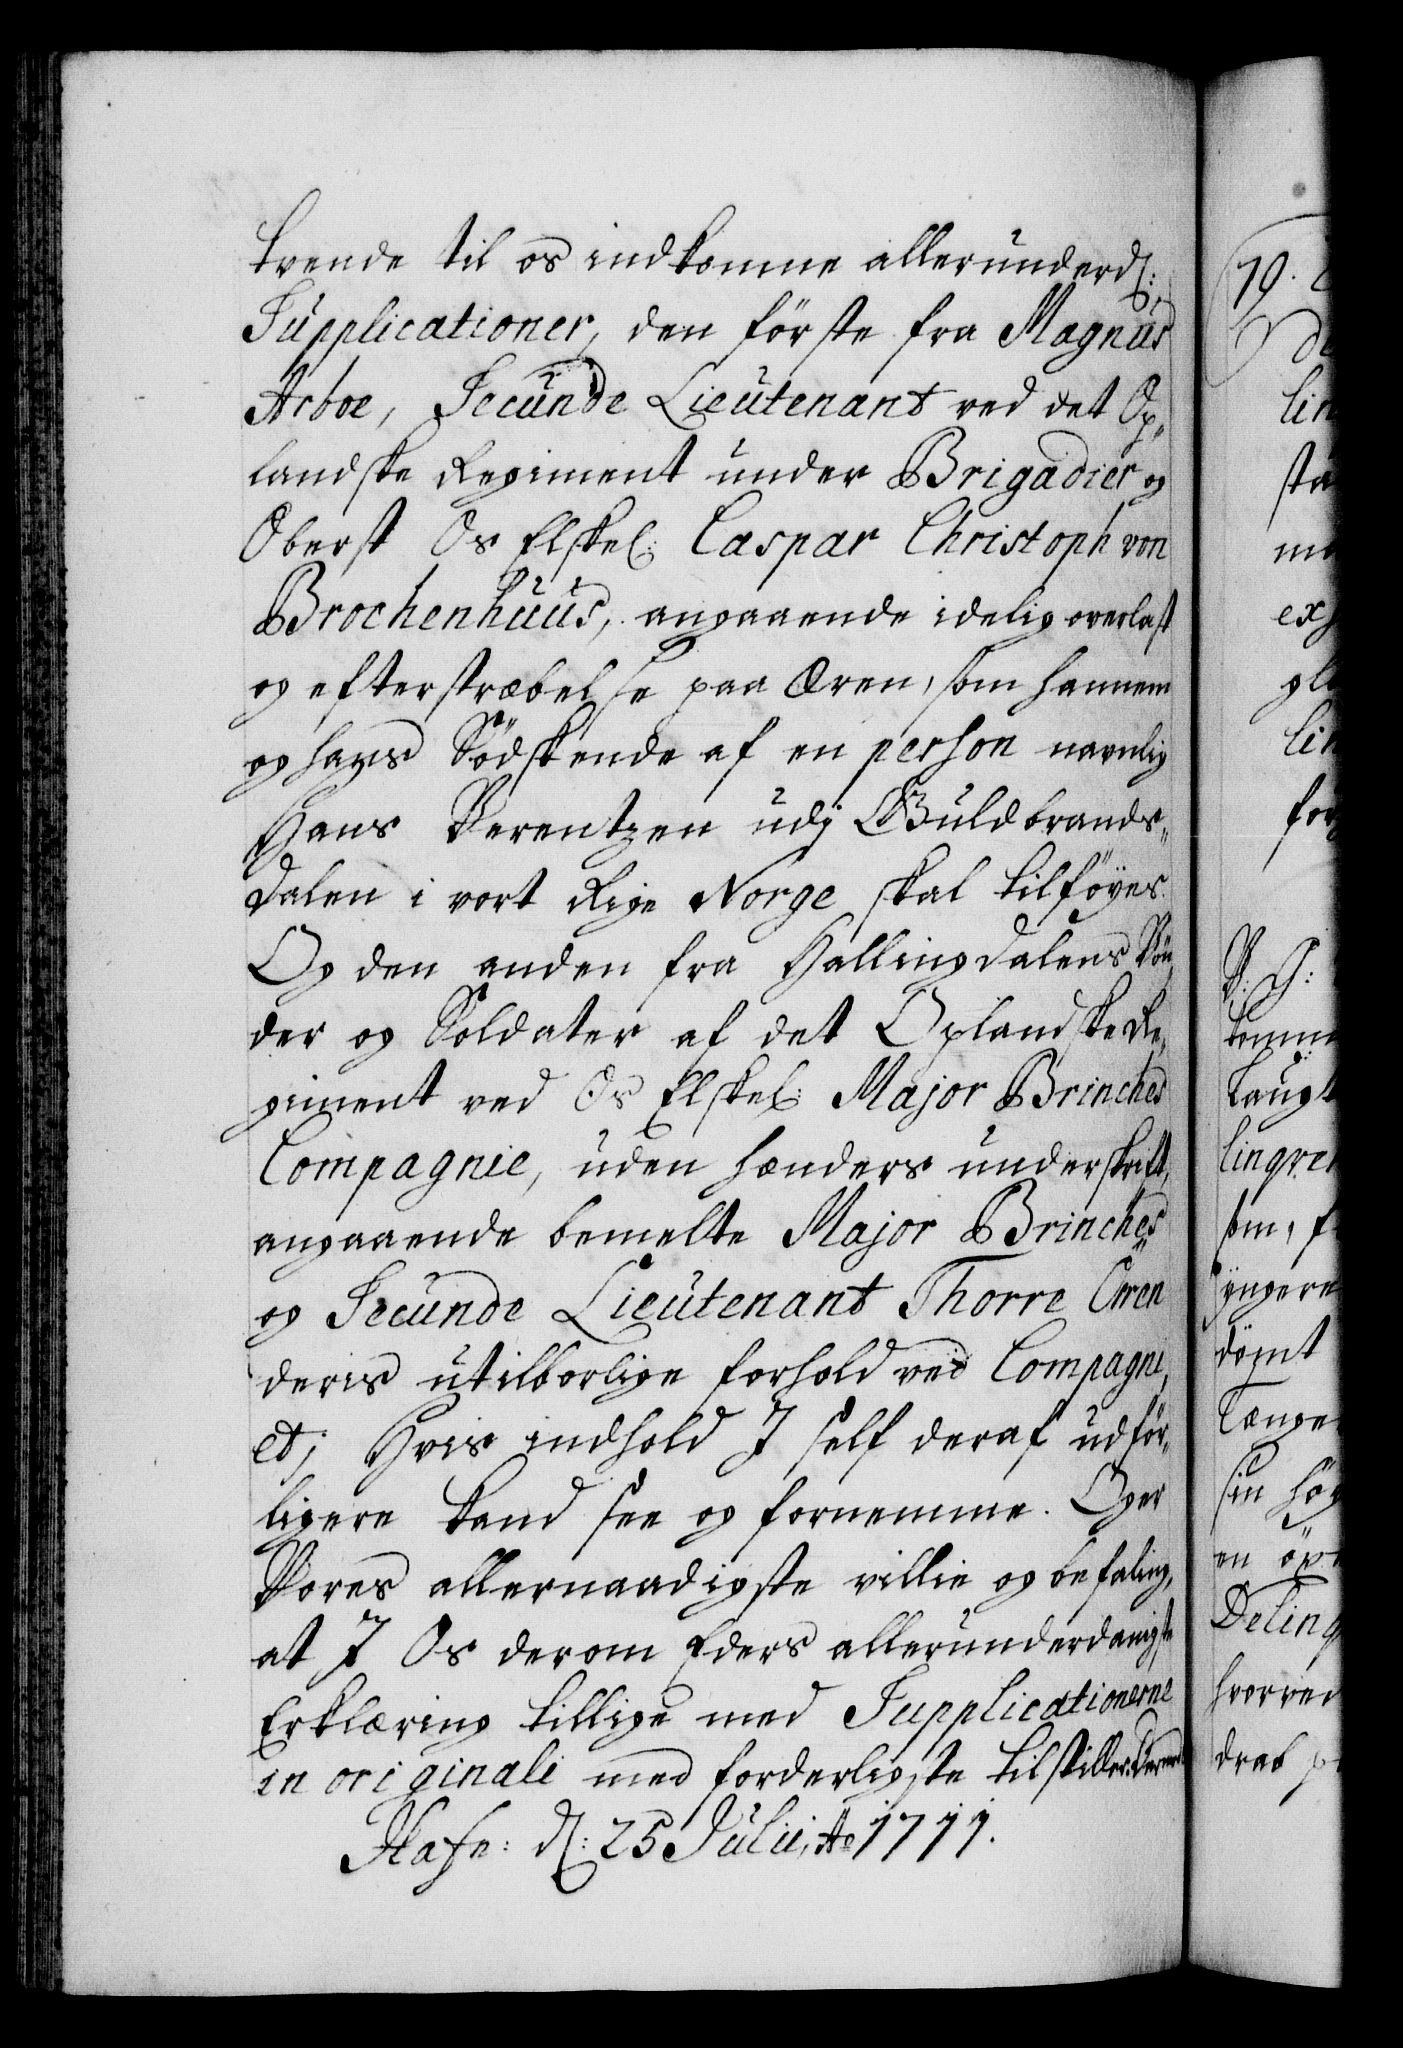 tvende til os indkomne allerunderd:
Supplicationer, den förste fra Magnus
Arboe, Secunde Lieutenant ved det Op,,
landske Regiment under Brigadier og
Oberst Os Elskel: Caspar Christoph von
Brochenhuus, angaaende idelig overlast
og efterstræbelse paa Æren, som hannem
og hans Södskende af en person navnlig
Hans Berentzen udj Guldbrands,,
dalen i vort Rige Norge skal tilföyes.
Og den anden fra Hallingdalens Bön
der og Soldater af det Oplandske Re,
giment ved Os Elskel: Major Brinches
Compagnie, uden hænders underskrift,
angaaende bemelte Major Brinches
og Secunde Lieutenant Thorre Orren
deris utilborlige forhold ved Compagni,
et; Hvis indhold I self deraf udför,
ligere kand see og fornemme. Og er
Vores allernaadigste villie og befaling,
at I Os derom Eders allerunderdanigste
Erklæring tillige med Supplicationerne
in originali med forderligste tilstiller.
Hafn: d: 25 Julii, Ao 1711.
19.
lin
sta
ex
lin
for
Linqve
som,
yngere
dömt
Længe
sin
en
Delinq
hvorved
drab